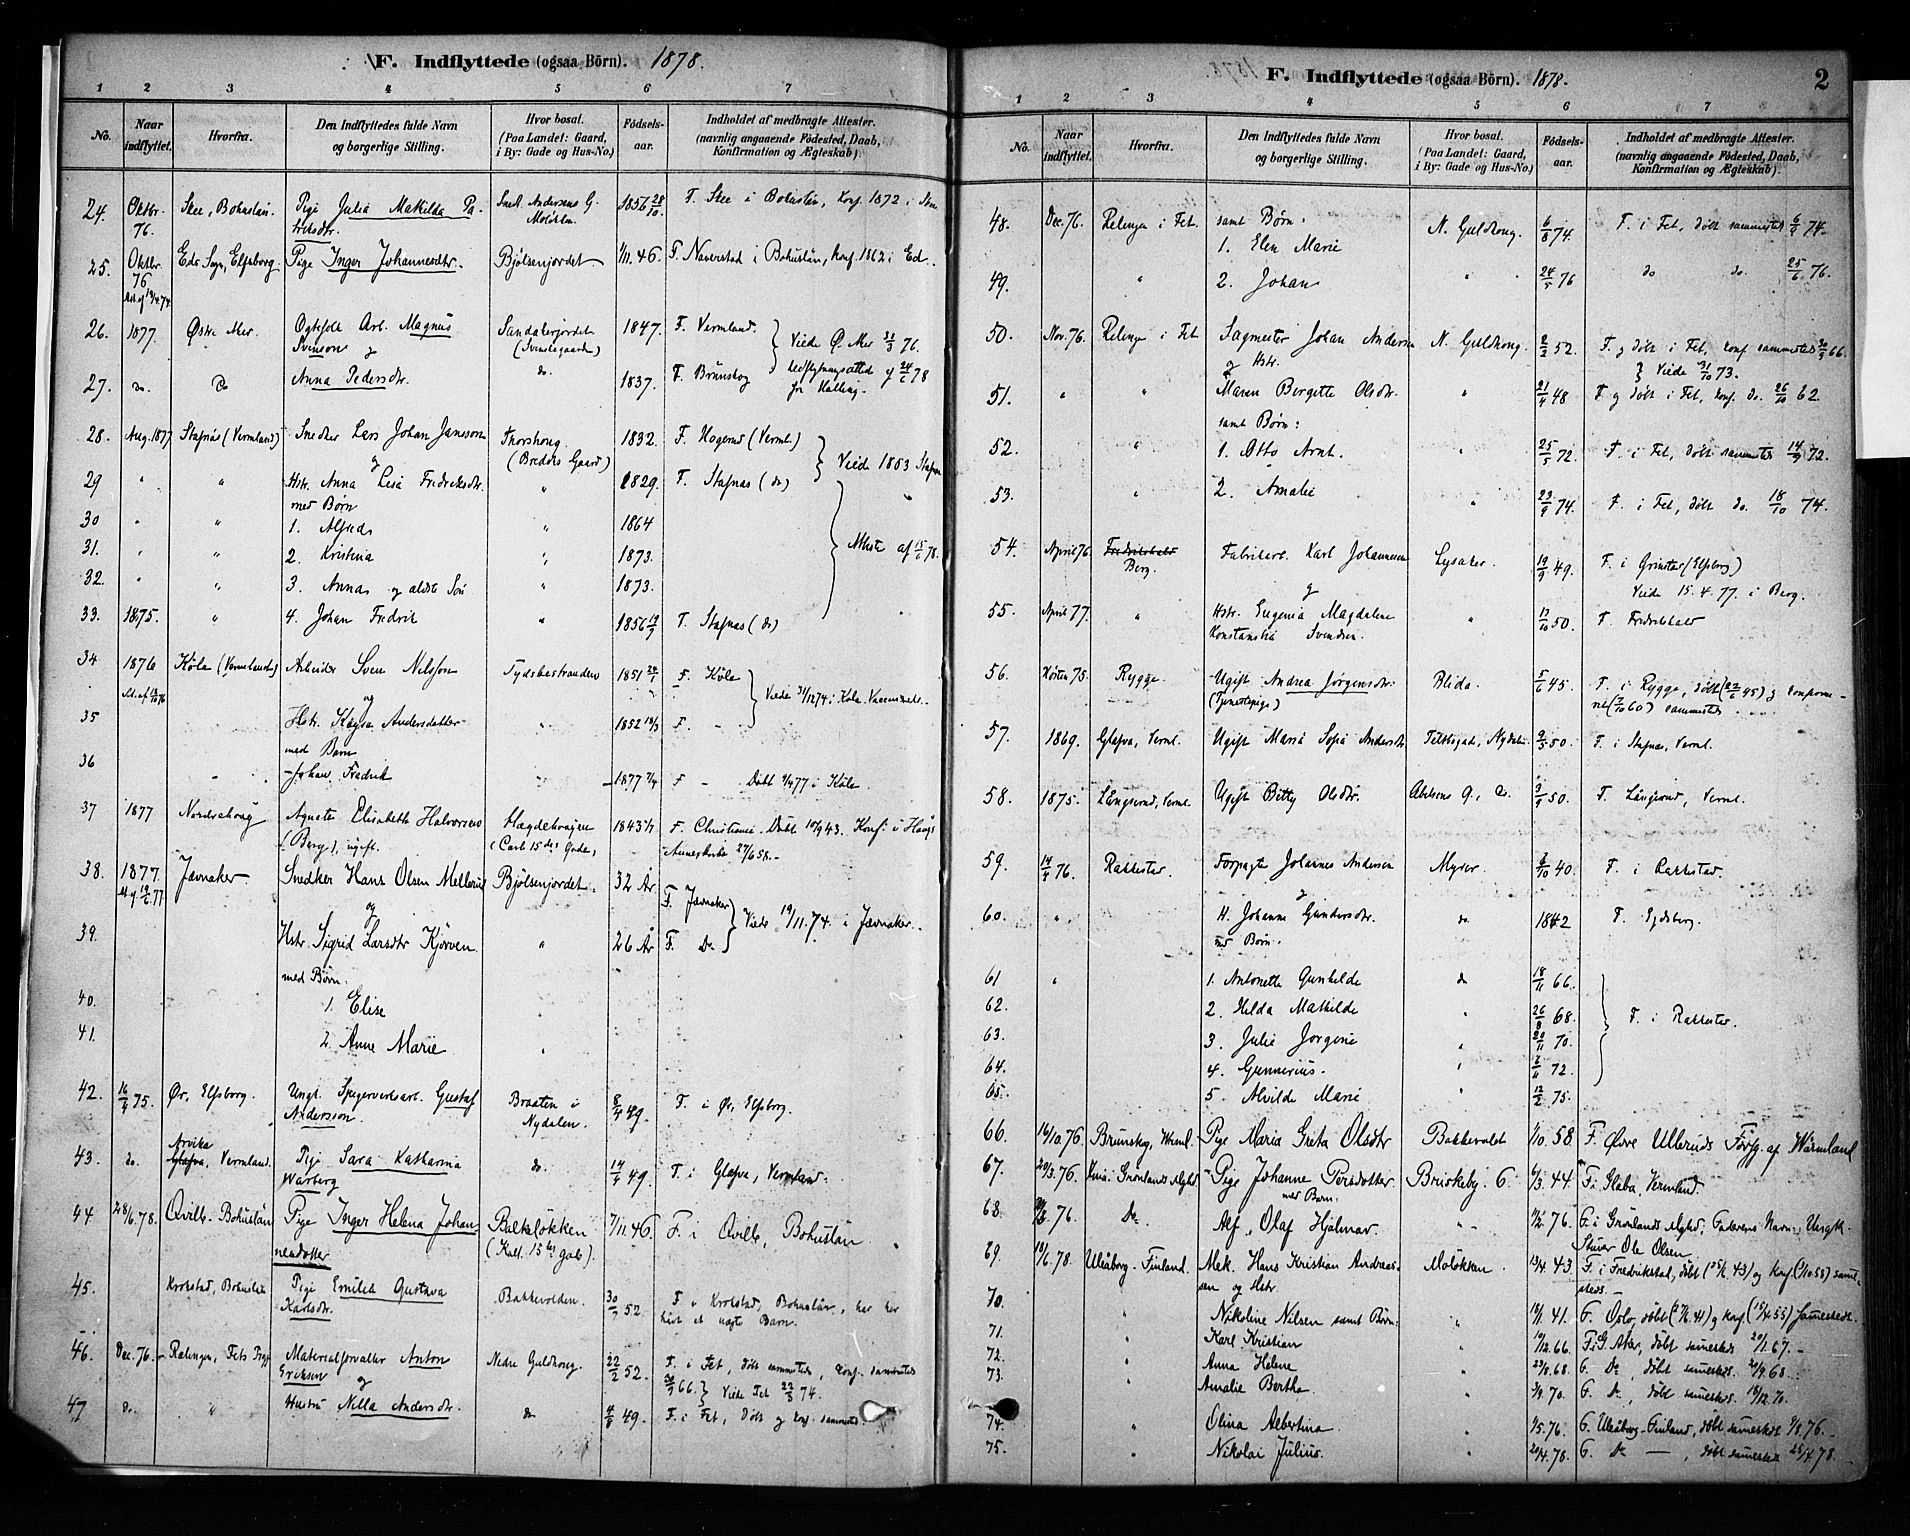 F. Indflyttede (ogsaa Börn). 1878.
1 2 3 4 5 6 7
No. Naar indflyttet. Hvorfra. Den Indflyttedes fulde Navn og borgerlige Stilling. Hvor bosat. (Paa Landet: Gaard, i By: Gade og Hus-No.) Födsels-aar. Indholdet af medbragte Attester. (navnlig angaaende Födested, Daab, Konfirmation og Ægteskab).
24. Oktbr. 76. Skee, Bohuslän. Pige Julia Mathilda Pa- 1856 28/10. F. Skee i Bohuslän, konf. 1872 i
25. Oktbr 76 Eds Sogn, Elfsborg. Pige Inger Johannesdtr. Bjølsenjordet. 1/11.46. F. Naverstad i Bohuslän, konf. 1862 i Ed.
26. 1877. Østre Aker. Magnus Svenson og Sandakerjordet 1847. F. Vermland. Viede Ø. Aker 76.
27. do. Do Anna Pedersdtr. do. 1837. F. Brunskog
28. Aug. 1877 Stafnäs (Vermland) Snedker Lars Johan Jansson og Thorshoug. (Bredors Gaard) 1832. F. (Verml.) Viede 1853
29 " " Hstr. Anna Lisa Fredriksdtr. " 1829. F. Stafnas (do)
med Børn
30 " " 1. Alfred " 1864
31. " " 2. Kristina " 1873. Attest af 15/6 78.
32. " " 3. Anna og ældste Søn " 1873.
33. 1875. " 4. Johan Fredrik " 1856 F. Stafnas (do)
34 1876 Köla (Vermland) Arbeider Sven Nelsson og 1851 F. Köla Viede 31/12 74 i Köla
35 Hstr. Kajsa Andersdatter " 1852 F. "
med Barn
36 " Johan Fredrik " 1877 F " Döbt 77 i Köla.
37 1877 Nordrehoug Agnete Elisabeth Halvorsen (Berg), ugift. Hægdehougen (Carl 15des Gade) 1843 F. Christiania. Döbt 10/9 43. Konf. i Haugs
38. 1877. Jævnaker. Snedker Hans Olsen Mellerud og Bjölsenjordet. 32 År F. Jævnaker Viede 19/11.74. i Jævnaker.
39. Hstr. Sigrid Larsdtr Kjörven " 26 År F. Do
med Börn.
40. 1. Elise
41. 2. Anne Marie "
42. 75. Ør, Elfsborg. Ungk. Spigerverksarb. Gustaf Andersson. Braaten i Nydalen. 49. F. i Ør, Elfsborg.
43. do. Arvika Glafva, Vermland. Pige Sara Katharina Warberg do. 49. F. i Glafva, Vermland.
44 28/6.78. Qville Bohuslän Pige Inger Helena Johannesdotter Balkeløkken 7/11.46. F. i Qville, Bohuslän.
45. Krokstad, Bohuslän Pige Emilia Gustava Karlsdtr. Bakkevolden. 52. F. i Krokstad, Bohuslän, har her født et uægte Barn.
46. Dec. 76. Relingen, Fets Materialforvalter Anton Eriksen og Nedre Guldhoug. 22/2 52. F. i Fet, døbt sammesteds, konf. sammesteds 66. Viede Fet 74.
47 do. " Hustru Nilla Andersdtr. do 49. F. i Fet, døbt og konf. sammesteds.
F. Indflyttede (ogsaa Börn). 1878. 2
1 2 3 4 5 6 7
No. Naar indflyttet. Hvorfra. Den Indflyttedes fulde Navn og borgerlige Stilling. Hvor bosat. (Paa Landet: Gaard, i By: Gade og Hus-No.) Födsels-aar. Indholdet af medbragte Attester. (navnlig angaaende Födested, Daab, Konfirmation og Ægteskab).
48. Dec. 76. Relingen i Fet. samt Børn: 1. Elen Marie N. Guldhoug. 6/8 74. F. i Fet, døbt sammesteds 6/9 74.
49. " 2. Johan " 24/5 76 do do. 25/6 76.
50. Nov. 76. Relingen i Fet Sagmester Johan Andersen og Hstr. N. Guldhoug. 52. F. og døbt i Fet, konf. sammesteds 66. Viede 31/10 73.
51. " " Maren Bergette Olsdtr. " 48 F. og døbt i Fet, konf. do. 26/10 62.
samt Børn:
52. " 1. Otto Arnt. " 25/5 72. F. i Fet, døbt sammesteds 14/7 72.
53. " 2. Amalie " 23/9 74. F. i Fet, døbt do. 18/10 74.
54. April 76 Fredrikshald Berg. Fabrikarb. Karl Johannesen og Lysaker. 19/9 49. F. i Grinstad (Elfsborg) Viede 15.4.77. i Berg.
55. April 77. " Hstr. Eugenia Magdalene Konstantia Svendsen. " 50. F. Fredrikshald
56. Høsten 75. Rygge. Ugift Andrea Jørgensdtr. (Tjenestepige) Blida. 5/6 45. F. i Rygge, døbt (22/6 45) og konfirmeret (7/10 60) sammesteds.
57. 1869. Glafva, Verml. Ugift Maria Sofia Andersdtr Nydalen 50. F. i Stafnas, Verml.
58. 1875. Långserud, Verml. Ugift Betty Olsdtr. 50. F. Långserud, Verml.
59. 76. Rakkestad. Forpagter Johannes Andersen og Myrer. 40 F. i Rakkestad.
60. " H. Johanne Gundersdtr. do 1842 F. Eydsberg.
med Børn.
61 " 1. Antonette Gunhilde do 18/11 66.
62. 2. Hilda Mathilde " 26/8 68. F. i Rakkestad.
63. 3. Julie Jørgine " 20/11 70.
64. 4. Gunnerius. " 72.
65. 5. Alvilde Marie " 12/2 75.
66. 14/10.76. Brunskog, Verml. Pige Maria Greta Olsdtr Bakkevolden 1/10 58. F. Øvre Ulleruds Förs. af Wärmland
67. 20/3.76. Grønlands Mghd. Pige Johanne Persdotter Briskeby. 6. 6/3.44 F. i Glava, Vermland.
med Barn:
68. 76. Do Alf, Olaf Hjalmar. " 76. F. i Grønlands Mghd, Faderens Navn: Ungk. Ole Olsen
69. 18/6.78. Uleåborg. Finland. Mek. Hans Kristian Andreassen og Hstr. Moløkken. 43. F. i Fredrikstad, døbt (43) og konf. (58) sammesteds.
70. " Nikoline Nilsen samt Børn: " 18/1.41. F. Oslo, døbt (41) og konf. (55) sammesteds.
71. " Karl Kristian 19/12.66. F. i G. Aker, døbt samesteds 20/1.67.
72. " Anna Helene 23/8.68. F. Do, døbt samesteds 68.
73. Amalie Bertha. 70. F. Do, døbt samesteds 18/12.70.
74. " Olina Albertina. " 1/5.76. F. Uleåborg. Finland, døbt samesteds 76.
75. " Nikolai Julius. " 20/4.78. F. Do — , døbt samesteds 25/4.78.